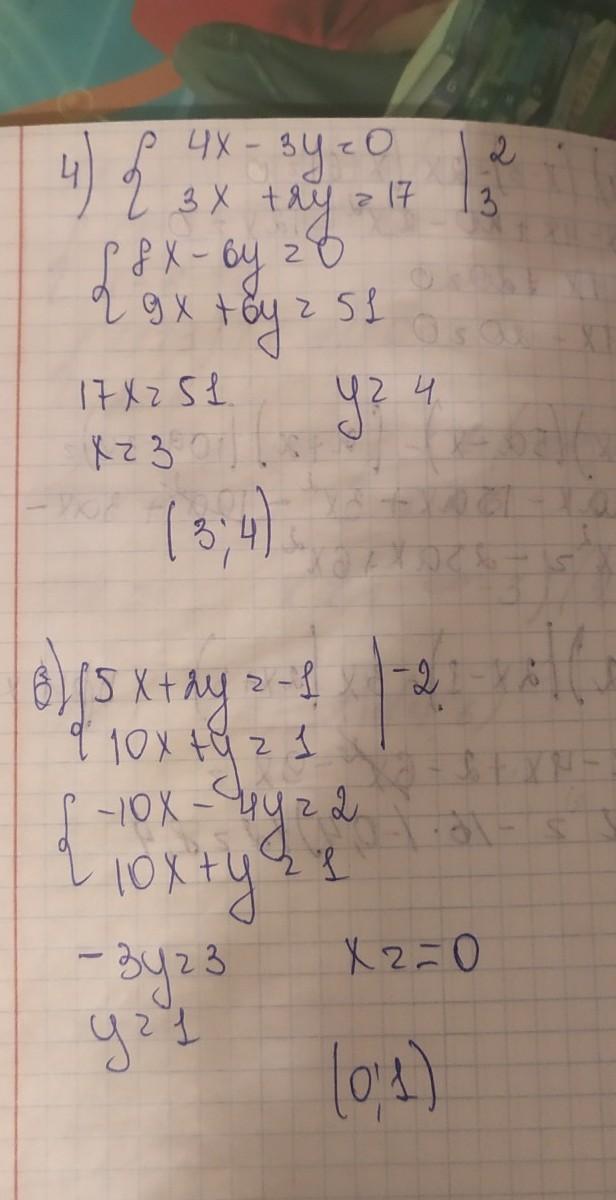 4) { 4x - 3y = 0 | 2
3x + 2y = 17 | 3
{ 8x - 6y = 0
9x + 6y = 51
17x = 51 y = 4
x = 3
(3; 4)
6) { 5x + 2y = -1 | -2
10x + y = 1
{ -10x - 4y = 2
10x + y = 1
-3y = 3 x = = 0
y = 1
(0; 1)